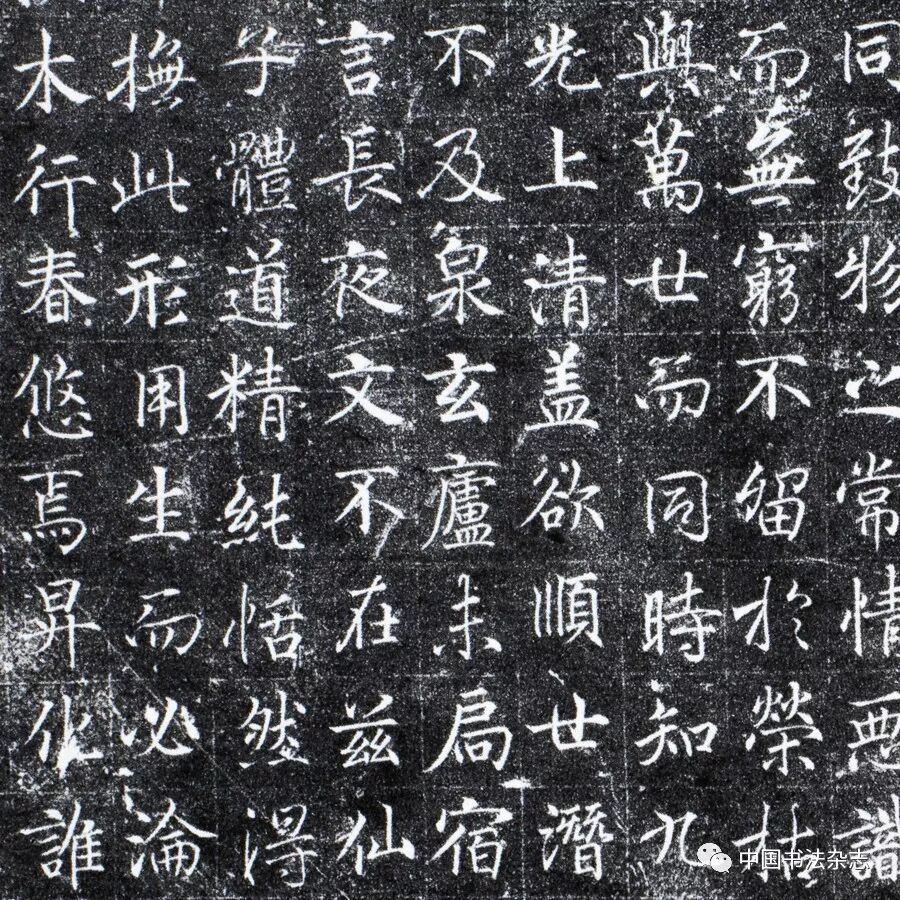 同致物之常情
而無窮不留於榮枯
與萬世而同時知九
光上清盖欲順世潛
不及泉玄廬未扃宿
言長夜文不在兹仙
子體道精純恬然得
撫此形用生而必淪
木行春悠焉昇化誰
中国书法杂志